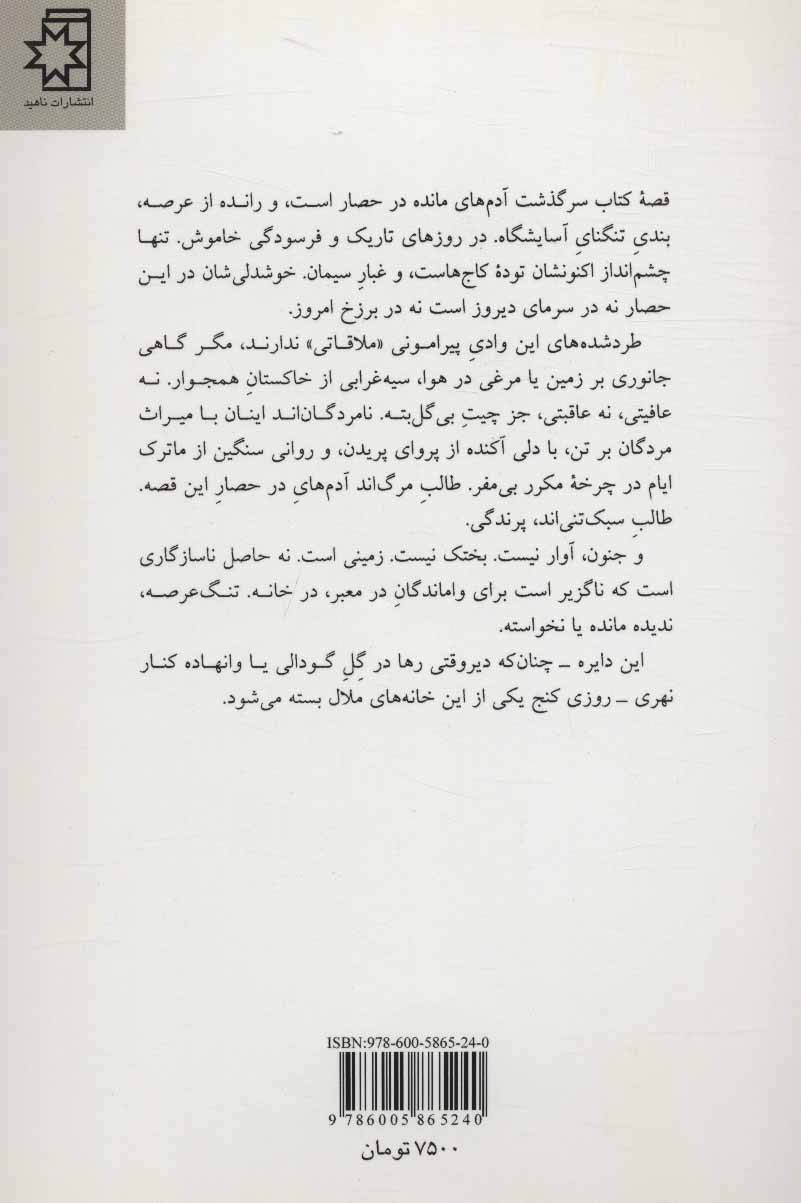 انتشارات ناهید
قصهٔ کتاب سرگذشت آدم‌های مانده در حصار است، و رانده از عرصه،
بندیِ تنگنایِ آسایشگاه. در روزهای تاریک و فرسودگی خاموش. تنها
چشم‌انداز اکنونشان تودهٔ کاج‌هاست، و غبارِ سیمان. خوشدلی‌شان در این
حصار نه در سرمای دیروز است نه در برزخ امروز.
طردشده‌های این وادیِ پیرامونی «ملاقاتی» ندارند، مگر گاهی
جانوری بر زمین یا مرغی در هوا، سیه‌غرابی از خاکستانِ همجوار. نه
عافیتی، نه عاقبتی، جز چیتِ بی‌گل‌بته. نامردگان‌اند اینان با میراث
مردگان بر تن، با دلی آکنده از پروای پریدن، و روانی سنگین از ماترک
ایام در چرخهٔ مکرر بی‌مفر. طالبِ مرگ‌اند آدم‌هایِ در حصارِ این قصه.
طالبِ سبک‌تنی‌اند، پرندگی.
و جنون، آوار نیست. بختک نیست. زمینی است. نه حاصل ناسازگاری
است که ناگزیر است برای واماندگانِ در معبر، در خانه. تنگ‌عرصه،
ندیده مانده یا نخواسته.
این دایره ـ چنان‌که دیروقتی رها در گِلِ گودالی یا وانهاده کنار
نهری ـ روزی کنج یکی از این خانه‌های ملال بسته می‌شود.
ISBN:978-600-5865-24-0
9 786005 865240
۷۵۰۰ تومان